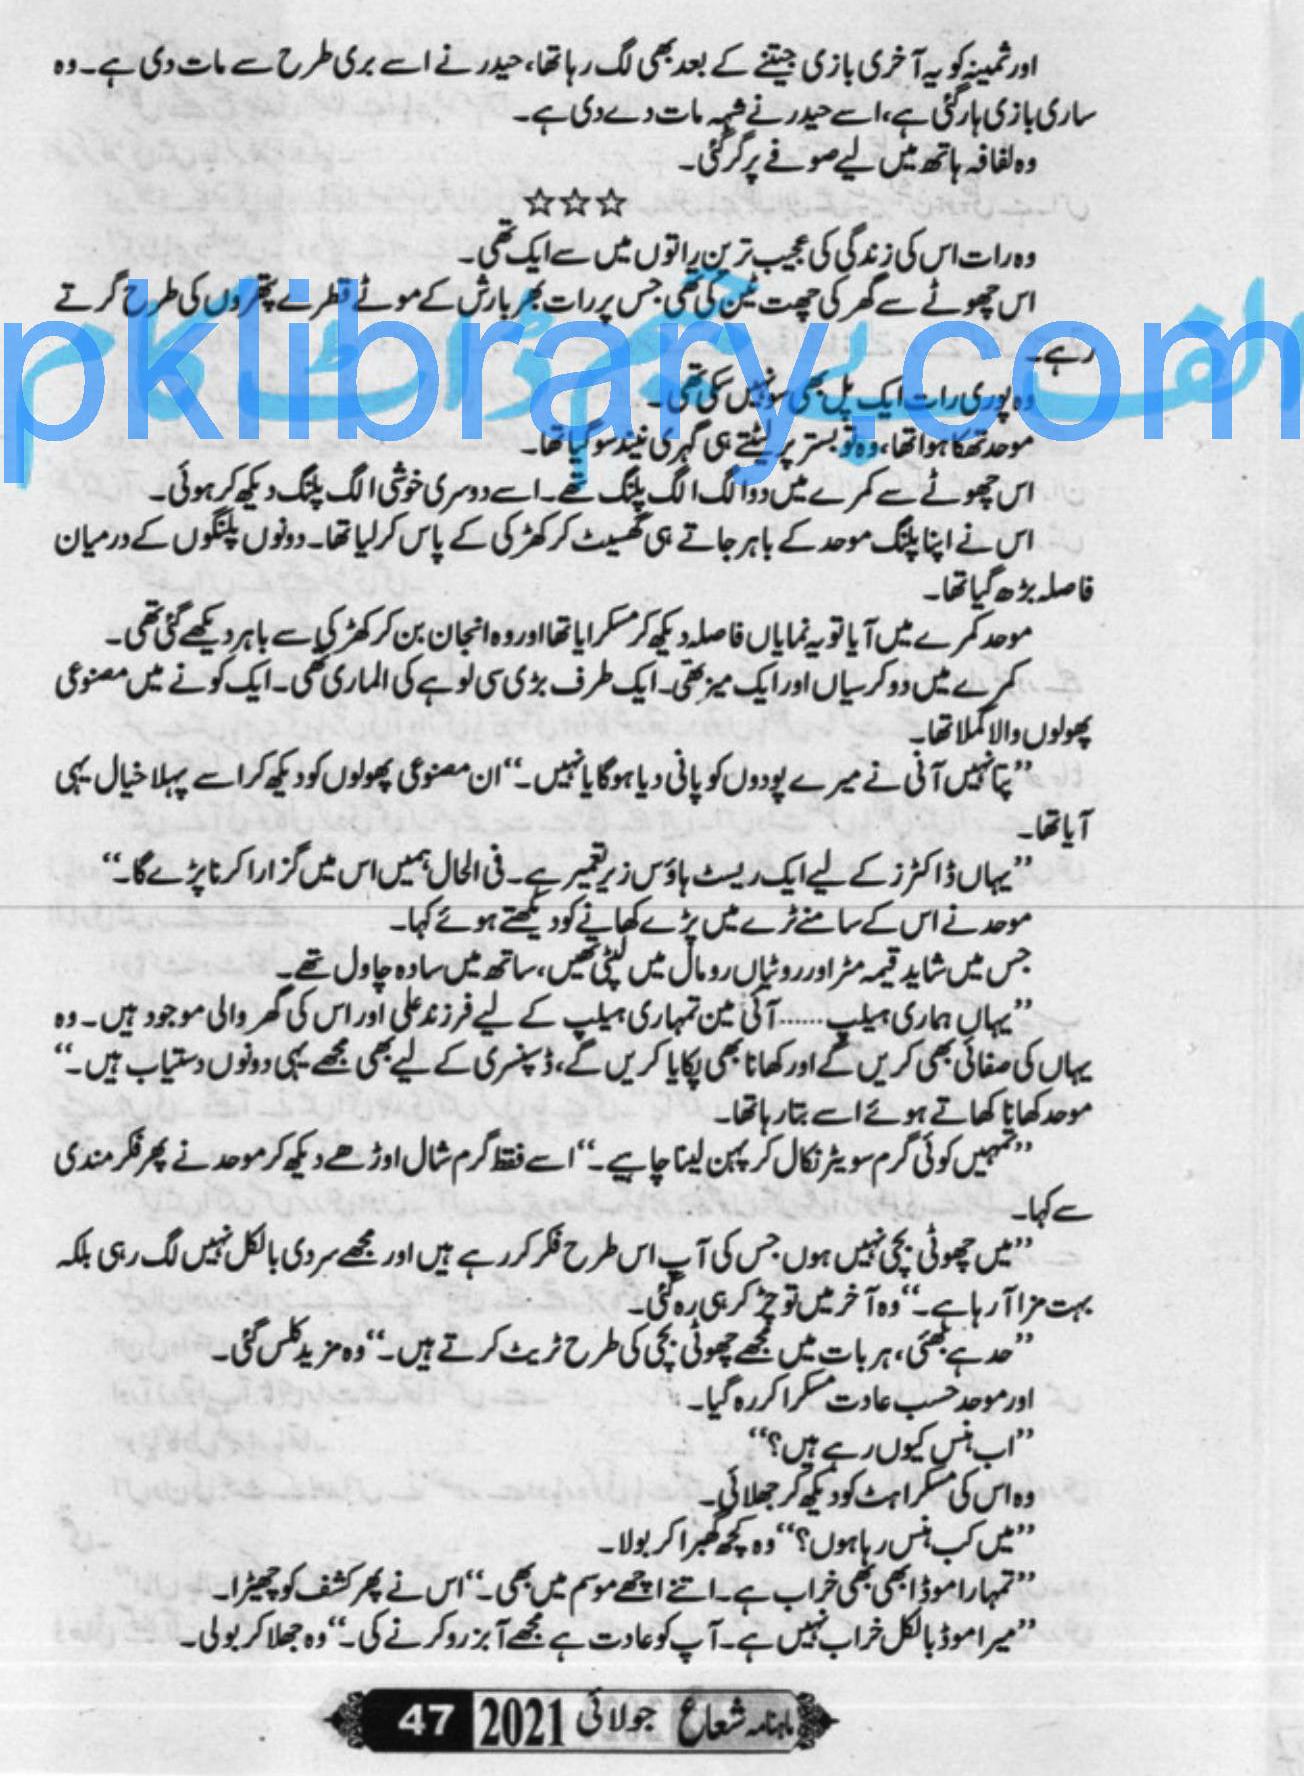 اور ثمینہ کو یہ آخری بازی جیتنے کے بعد بھی لگ رہا تھا، حیدر نے اسے بری طرح سے مات دی ہے۔ وہ
ساری بازی ہار گئی ہے، اسے حیدر نے شہہ مات دے دی ہے۔
وہ لفافہ ہاتھ میں لیے صوفے پر گر گئی۔
☆☆☆
وہ رات اس کی زندگی کی عجیب ترین راتوں میں سے ایک تھی۔
اس چھوٹے سے گھر کی چھت ٹین کی تھی جس پر رات بھر بارش کے موٹے قطرے پتھروں کی طرح گرتے
رہے۔
وہ پوری رات ایک پل بھی سو نہیں سکی تھی۔
موحد تھکا ہوا تھا، وہ تو بستر پر لیٹتے ہی گہری نیند سو گیا تھا۔
اس چھوٹے سے کمرے میں دو الگ الگ پلنگ تھے۔ اسے دوسری خوشی الگ پلنگ دیکھ کر ہوئی۔
اس نے اپنا پلنگ موحد کے باہر جاتے ہی گھسیٹ کر کھڑکی کے پاس کر لیا تھا۔ دونوں پلنگوں کے درمیان
فاصلہ بڑھ گیا تھا۔
موحد کمرے میں آیا تو یہ نمایاں فاصلہ دیکھ کر مسکرایا تھا اور وہ انجان بن کر کھڑکی سے باہر دیکھے گئی تھی۔
کمرے میں دو کرسیاں اور ایک میز تھی۔ ایک طرف بڑی سی لوہے کی الماری تھی۔ ایک کونے میں مصنوعی
پھولوں والا گملا تھا۔
”پتا نہیں آنی نے میرے پودوں کو پانی دیا ہوگا یا نہیں۔“ ان مصنوعی پھولوں کو دیکھ کر اسے پہلا خیال یہی
آیا تھا۔
”یہاں ڈاکٹرز کے لیے ایک ریسٹ ہاؤس زیر تعمیر ہے۔ فی الحال ہمیں اس میں گزارا کرنا پڑے گا۔“
موحد نے اس کے سامنے ٹرے میں پڑے کھانے کو دیکھتے ہوئے کہا۔
جس میں شاید قیمہ مٹر اور روٹیاں رومال میں لپٹی تھیں، ساتھ میں سادہ چاول تھے۔
”یہاں ہماری ہیلپ...... آئی مین تمہاری ہیلپ کے لیے فرزند علی اور اس کی گھر والی موجود ہیں۔ وہ
یہاں کی صفائی بھی کریں گے اور کھانا بھی پکایا کریں گے، ڈسپنسری کے لیے بھی مجھے یہی دونوں دستیاب ہیں۔“
موحد کھانا کھاتے ہوئے اسے بتا رہا تھا۔
”تمہیں کوئی گرم سویٹر نکال کر پہن لینا چاہیے۔“ اسے فقط گرم شال اوڑھے دیکھ کر موحد نے پھر فکرمندی
سے کہا۔
”میں چھوٹی بچی نہیں ہوں جس کی آپ اس طرح فکر کر رہے ہیں اور مجھے سردی بالکل نہیں لگ رہی بلکہ
بہت مزا آ رہا ہے۔“ وہ آخر میں تو چڑ کر ہی رہ گئی۔
”حد ہے بھئی، ہر بات میں مجھے چھوٹی بچی کی طرح ٹریٹ کرتے ہیں۔“ وہ مزید کلس گئی۔
اور موحد حسب عادت مسکرا کر رہ گیا۔
”اب ہنس کیوں رہے ہیں؟“
وہ اس کی مسکراہٹ کو دیکھ کر جھلائی۔
”میں کب ہنس رہا ہوں؟“ وہ کچھ گھبرا کر بولا۔
”تمہارا موڈ ابھی بھی خراب ہے۔ اتنے اچھے موسم میں بھی۔“ اس نے پھر کشف کو چھیڑا۔
”میرا موڈ بالکل خراب نہیں ہے۔ آپ کو عادت ہے مجھے آبزرو کرنے کی۔“ وہ جھلا کر بولی۔
ماہنامہ شعاع جولائی 2021 47
pklibrary.com